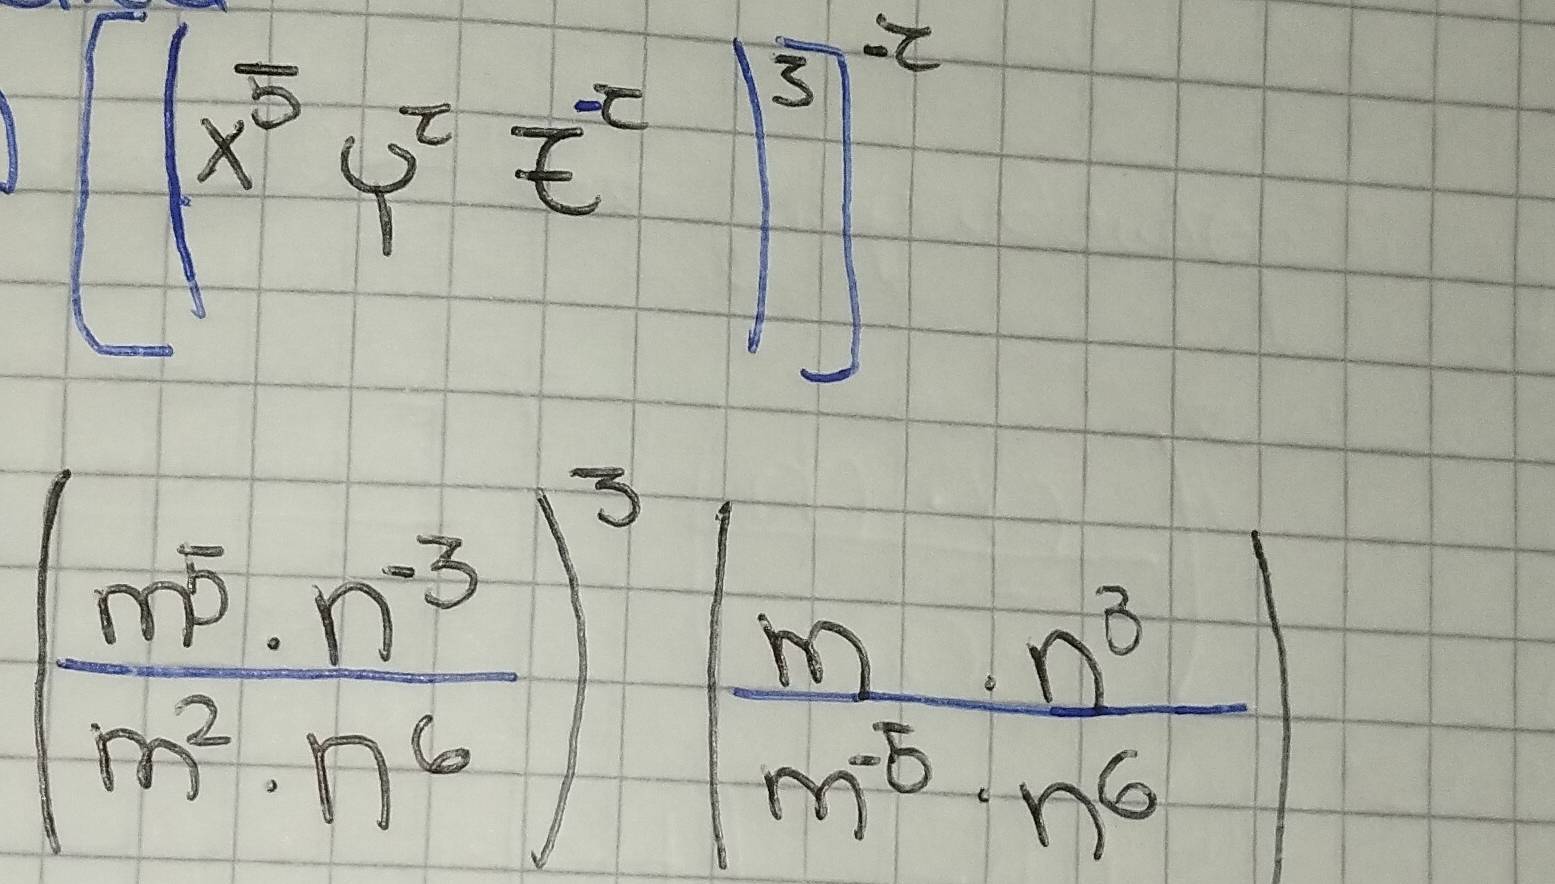 ) [(x⁵ y² z⁻²)³]⁻²
(m⁵ · n⁻³ / m² · n⁶)³ (m · n³ / m⁻⁵ · n⁶)